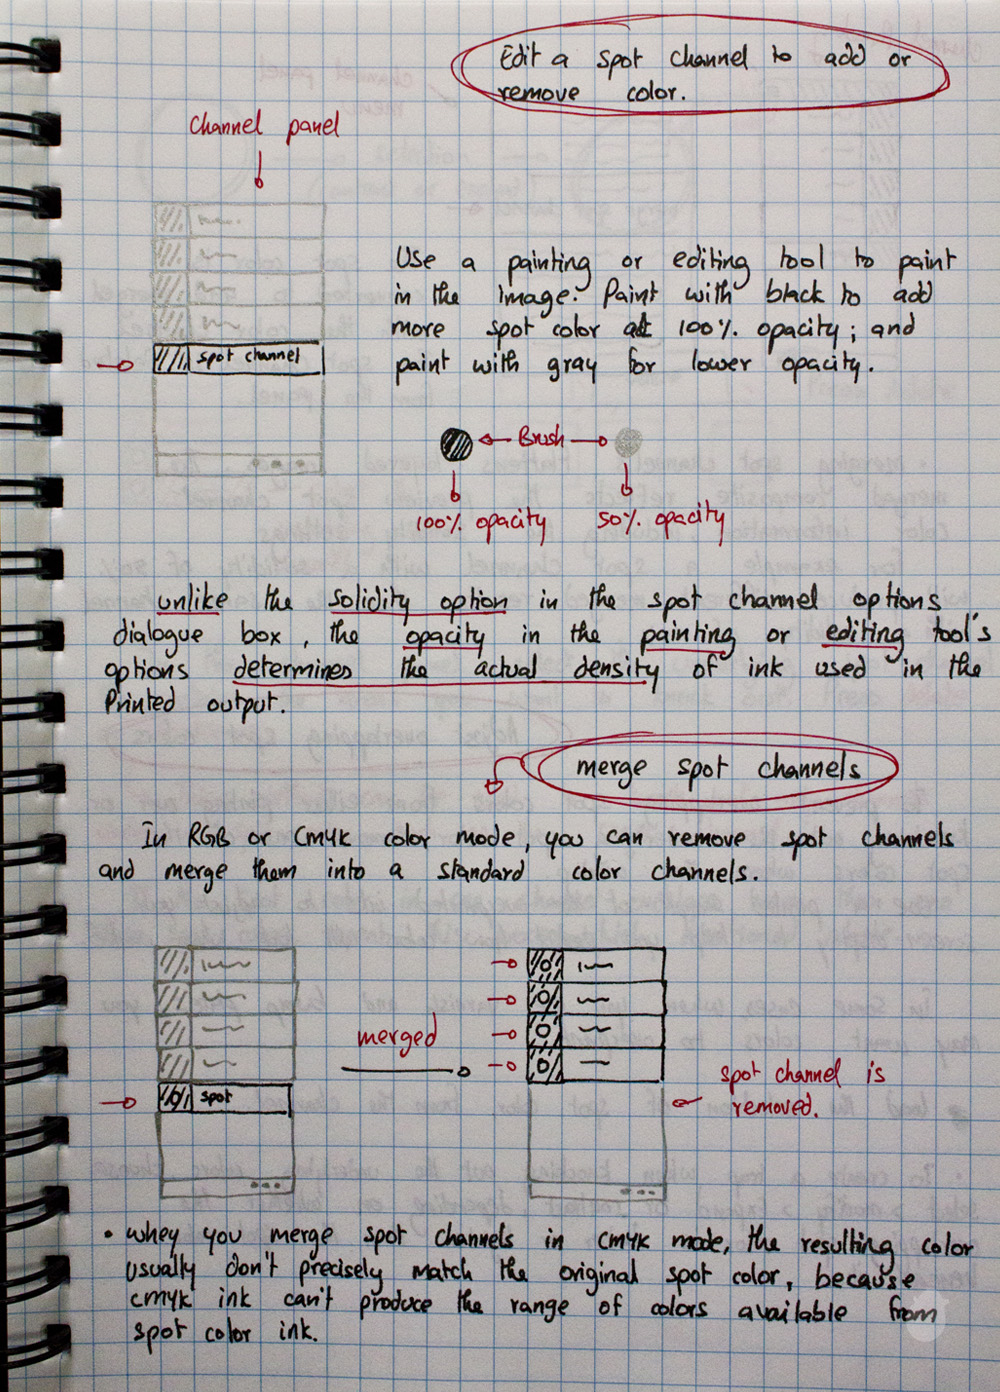 Edit a spot channel to add or
remove color.
Channel panel
Use a painting or editing tool to paint
in the image. Paint with black to add
more spot color at 100% opacity; and
paint with gray for lower opacity.
spot channel
Brush
100% opacity
50% opacity
unlike the solidity option in the spot channel options
dialogue box, the opacity in the painting or editing tool's
options determines the actual density of ink used in the
Printed output.
merge spot channels
In RGB or CMYK color mode, you can remove spot channels
and merge them into a standard color channels.
merged
spot
spot channel is
removed.
• whey you merge spot channels in CMYK mode, the resulting color
usually don't precisely match the original spot color, because
CMYK ink can't produce the range of colors available from
spot color ink.